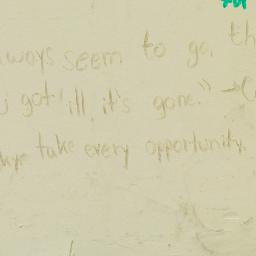 always seem to go, th
u got 'till, it's gone."
take every opportunity.